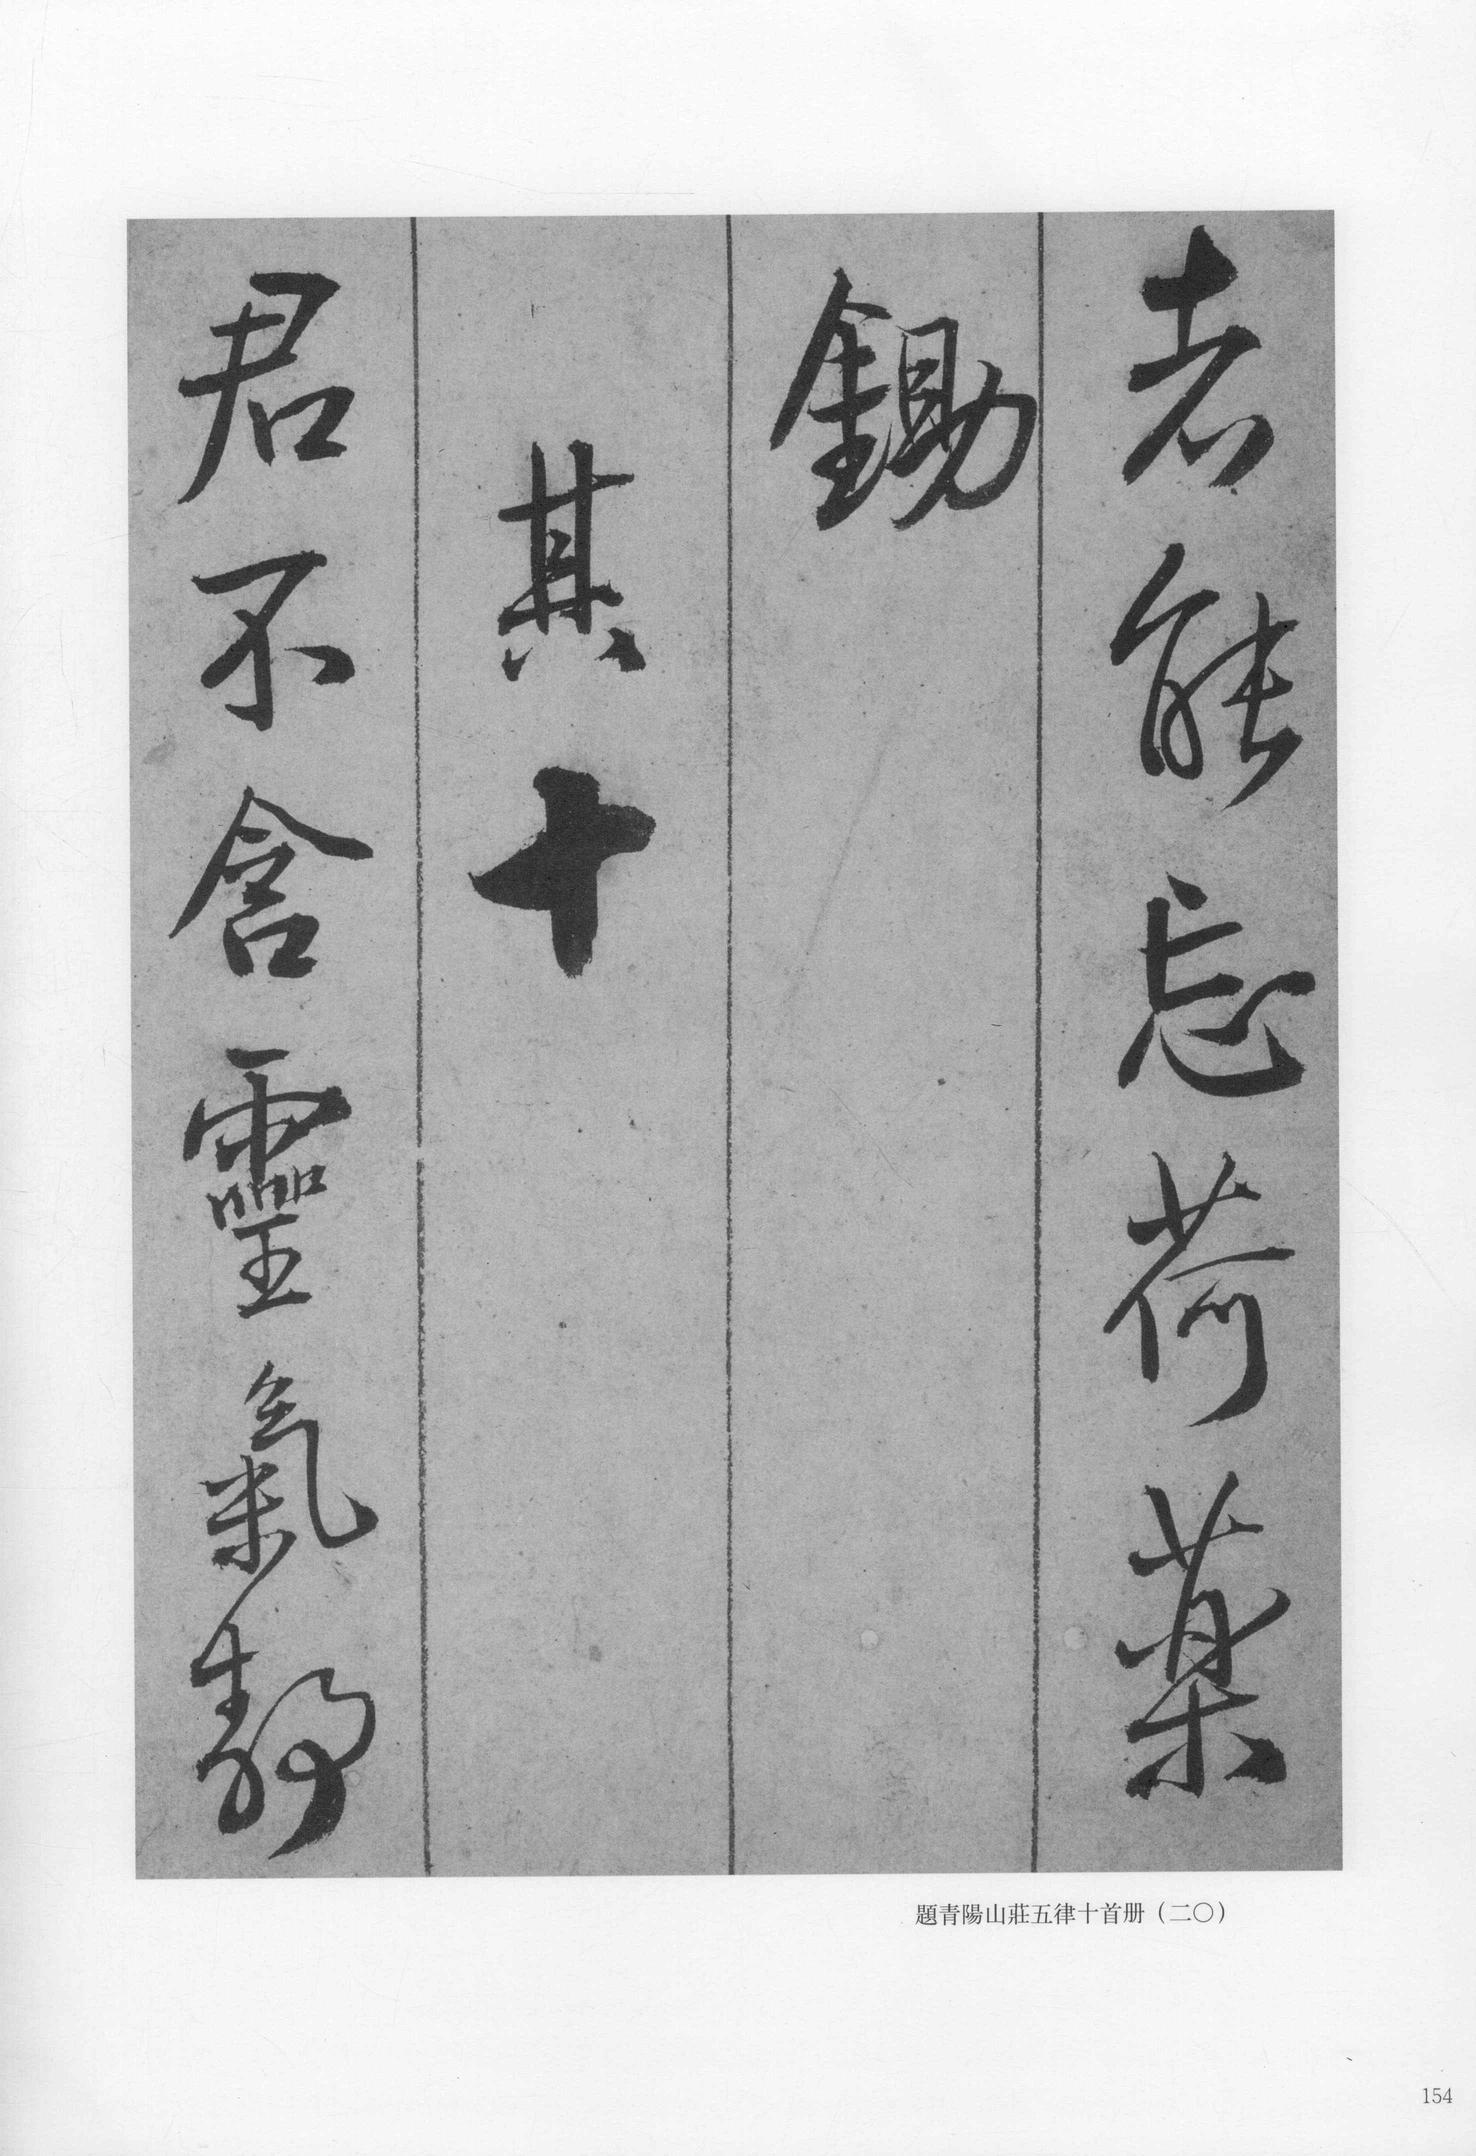 老能忘荷藥
鋤
其十
君不含靈氣靜
題青陽山莊五律十首册（二〇）
154